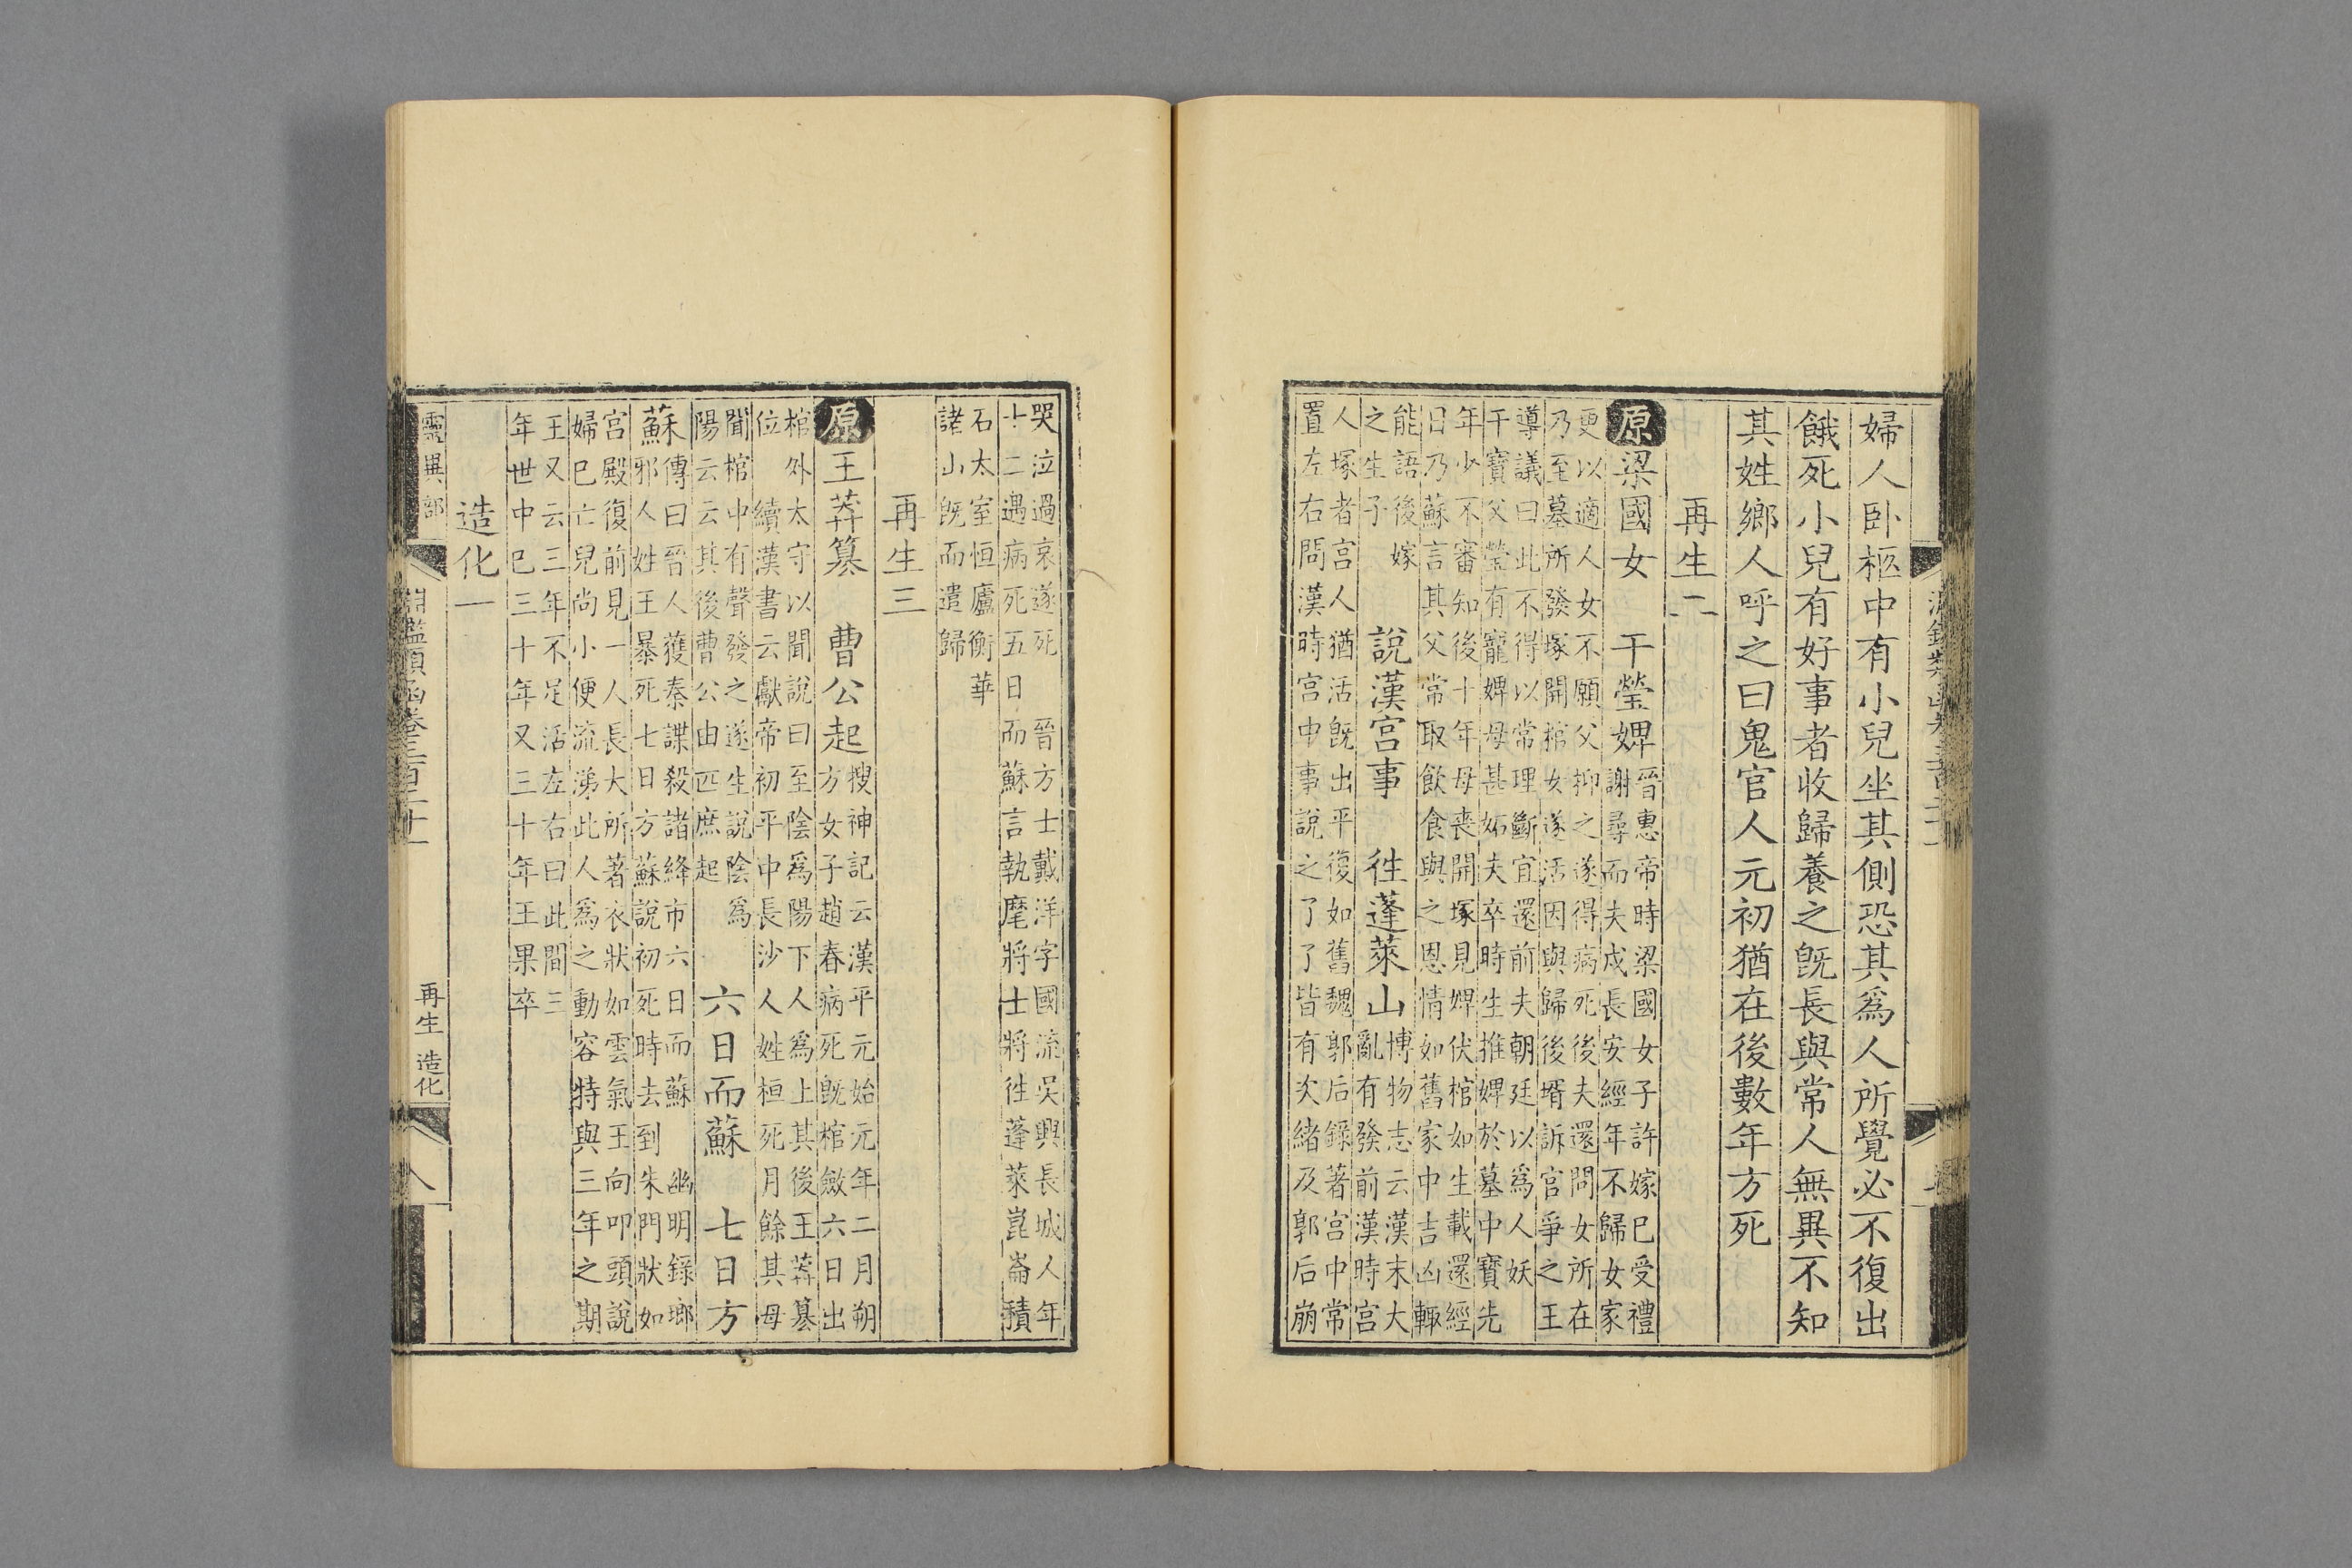 婦人卧柩中有小兒坐其側恐其爲人所覺必不復出
餓死小兒有好事者收歸養之旣長與常人無異不知
其姓鄉人呼之曰鬼官人元初猶在後數年方死
再生二
原梁國女　干瑩婢
晉惠帝時梁國女子許嫁已受禮
謝尋而夫戍長安經年不歸女家
更以適人女不願父抑之遂得病死後夫還問女所在
乃至墓所發塚開棺女遂活因與歸後壻訴官爭之王
導議曰此不得以常理斷宜還前夫朝廷以爲人妖
干寶父瑩有寵婢母甚妬夫卒時生推婢於墓中寶先
年少不審知後十年母喪開塚見婢伏棺如生載還經
日乃蘇言其父常取飲食與之恩情如舊家中吉凶輙
能語後嫁
之生子
說漢宮事　徃蓬萊山
博物志云漢末大
亂有發前漢時宮
人塚者宮人猶活旣出平復如舊魏郭后錄著宮中常
置左右問漢時宮中事說之了了皆有次緒及郭后崩
哭泣過哀遂死　晉方士戴洋字國流吳興長城人年
十二遇病死五日而蘇言執麾將士將徃蓬萊崑崙積
石太室恒廬衡華
諸山旣而遣歸
再生三
原王莽簒　曹公起
搜神記云漢平元始元年二月朔
方女子趙春病死旣棺斂六日出
棺外太守以聞說曰至陰爲陽下人爲上其後王莽簒
位　續漢書云獻帝初平中長沙人姓桓死月餘其母
聞棺中有聲發之遂生說陰爲
陽云云其後曹公由匹庶起
六日而蘇　七日方
蘇
傳曰晉人獲秦諜殺諸絳市六日而蘇　幽明錄瑯
邪人姓王暴死七日方蘇說初死時去到朱門狀如
宮殿復前見一人長大所著衣狀如雲氣王向叩頭說
婦已亡兒尚小便流涕此人爲之動容特與三年之期
王又云三年不足活左右曰此間三
年世中已三十年又三十年王果卒
造化一
靈異部
再生　造化
八